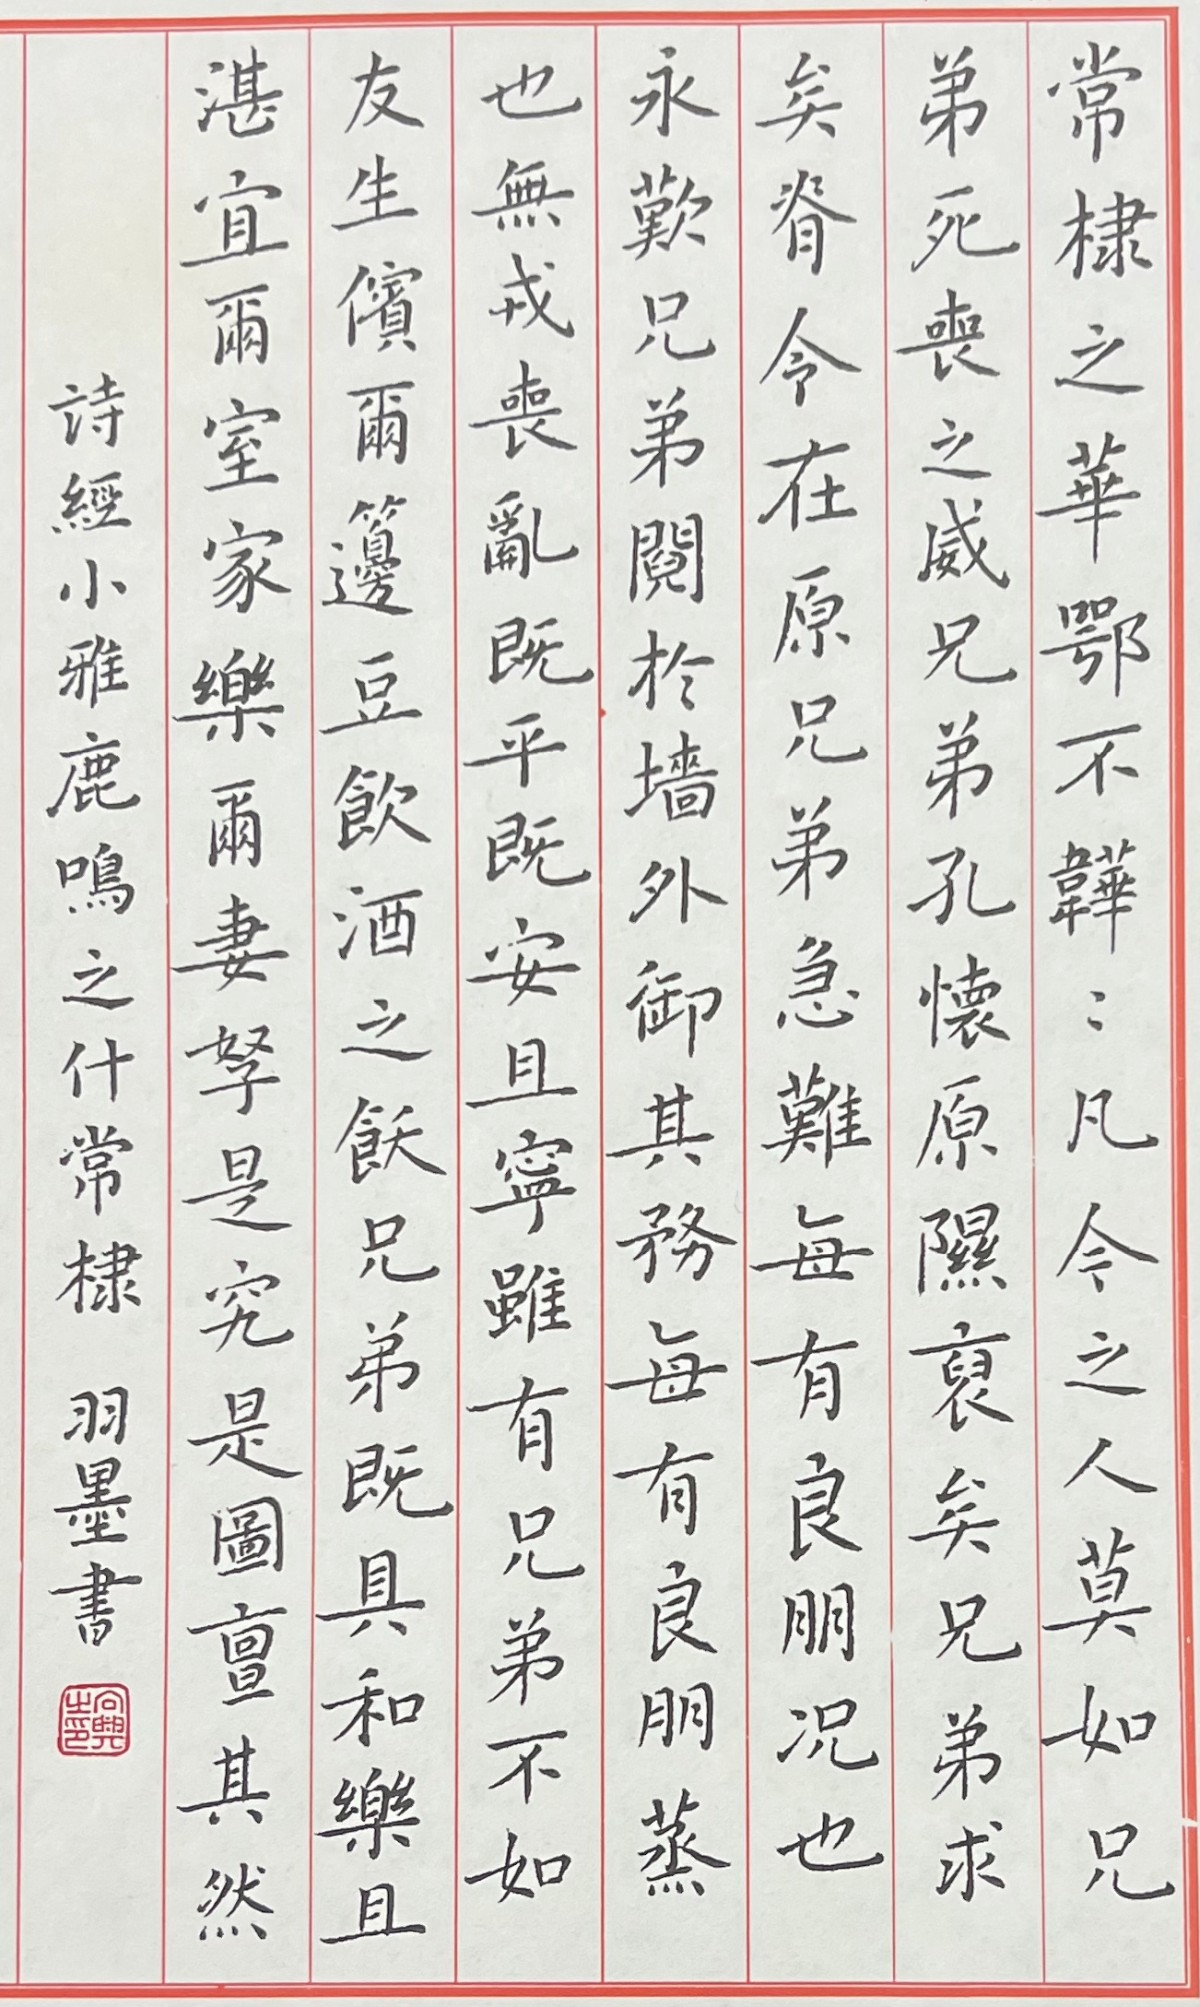 常棣之華鄂不韡〻凡今之人莫如兄
弟死喪之威兄弟孔懷原隰裒矣兄弟求
矣脊令在原兄弟急難每有良朋况也
永歎兄弟鬩於墻外御其務每有良朋烝
也無戎喪亂既平既安且寧雖有兄弟不如
友生儐爾籩豆飲酒之飫兄弟既具和樂且
湛宜爾室家樂爾妻孥是究是圖亶其然
詩經小雅鹿鳴之什常棣 羽墨書